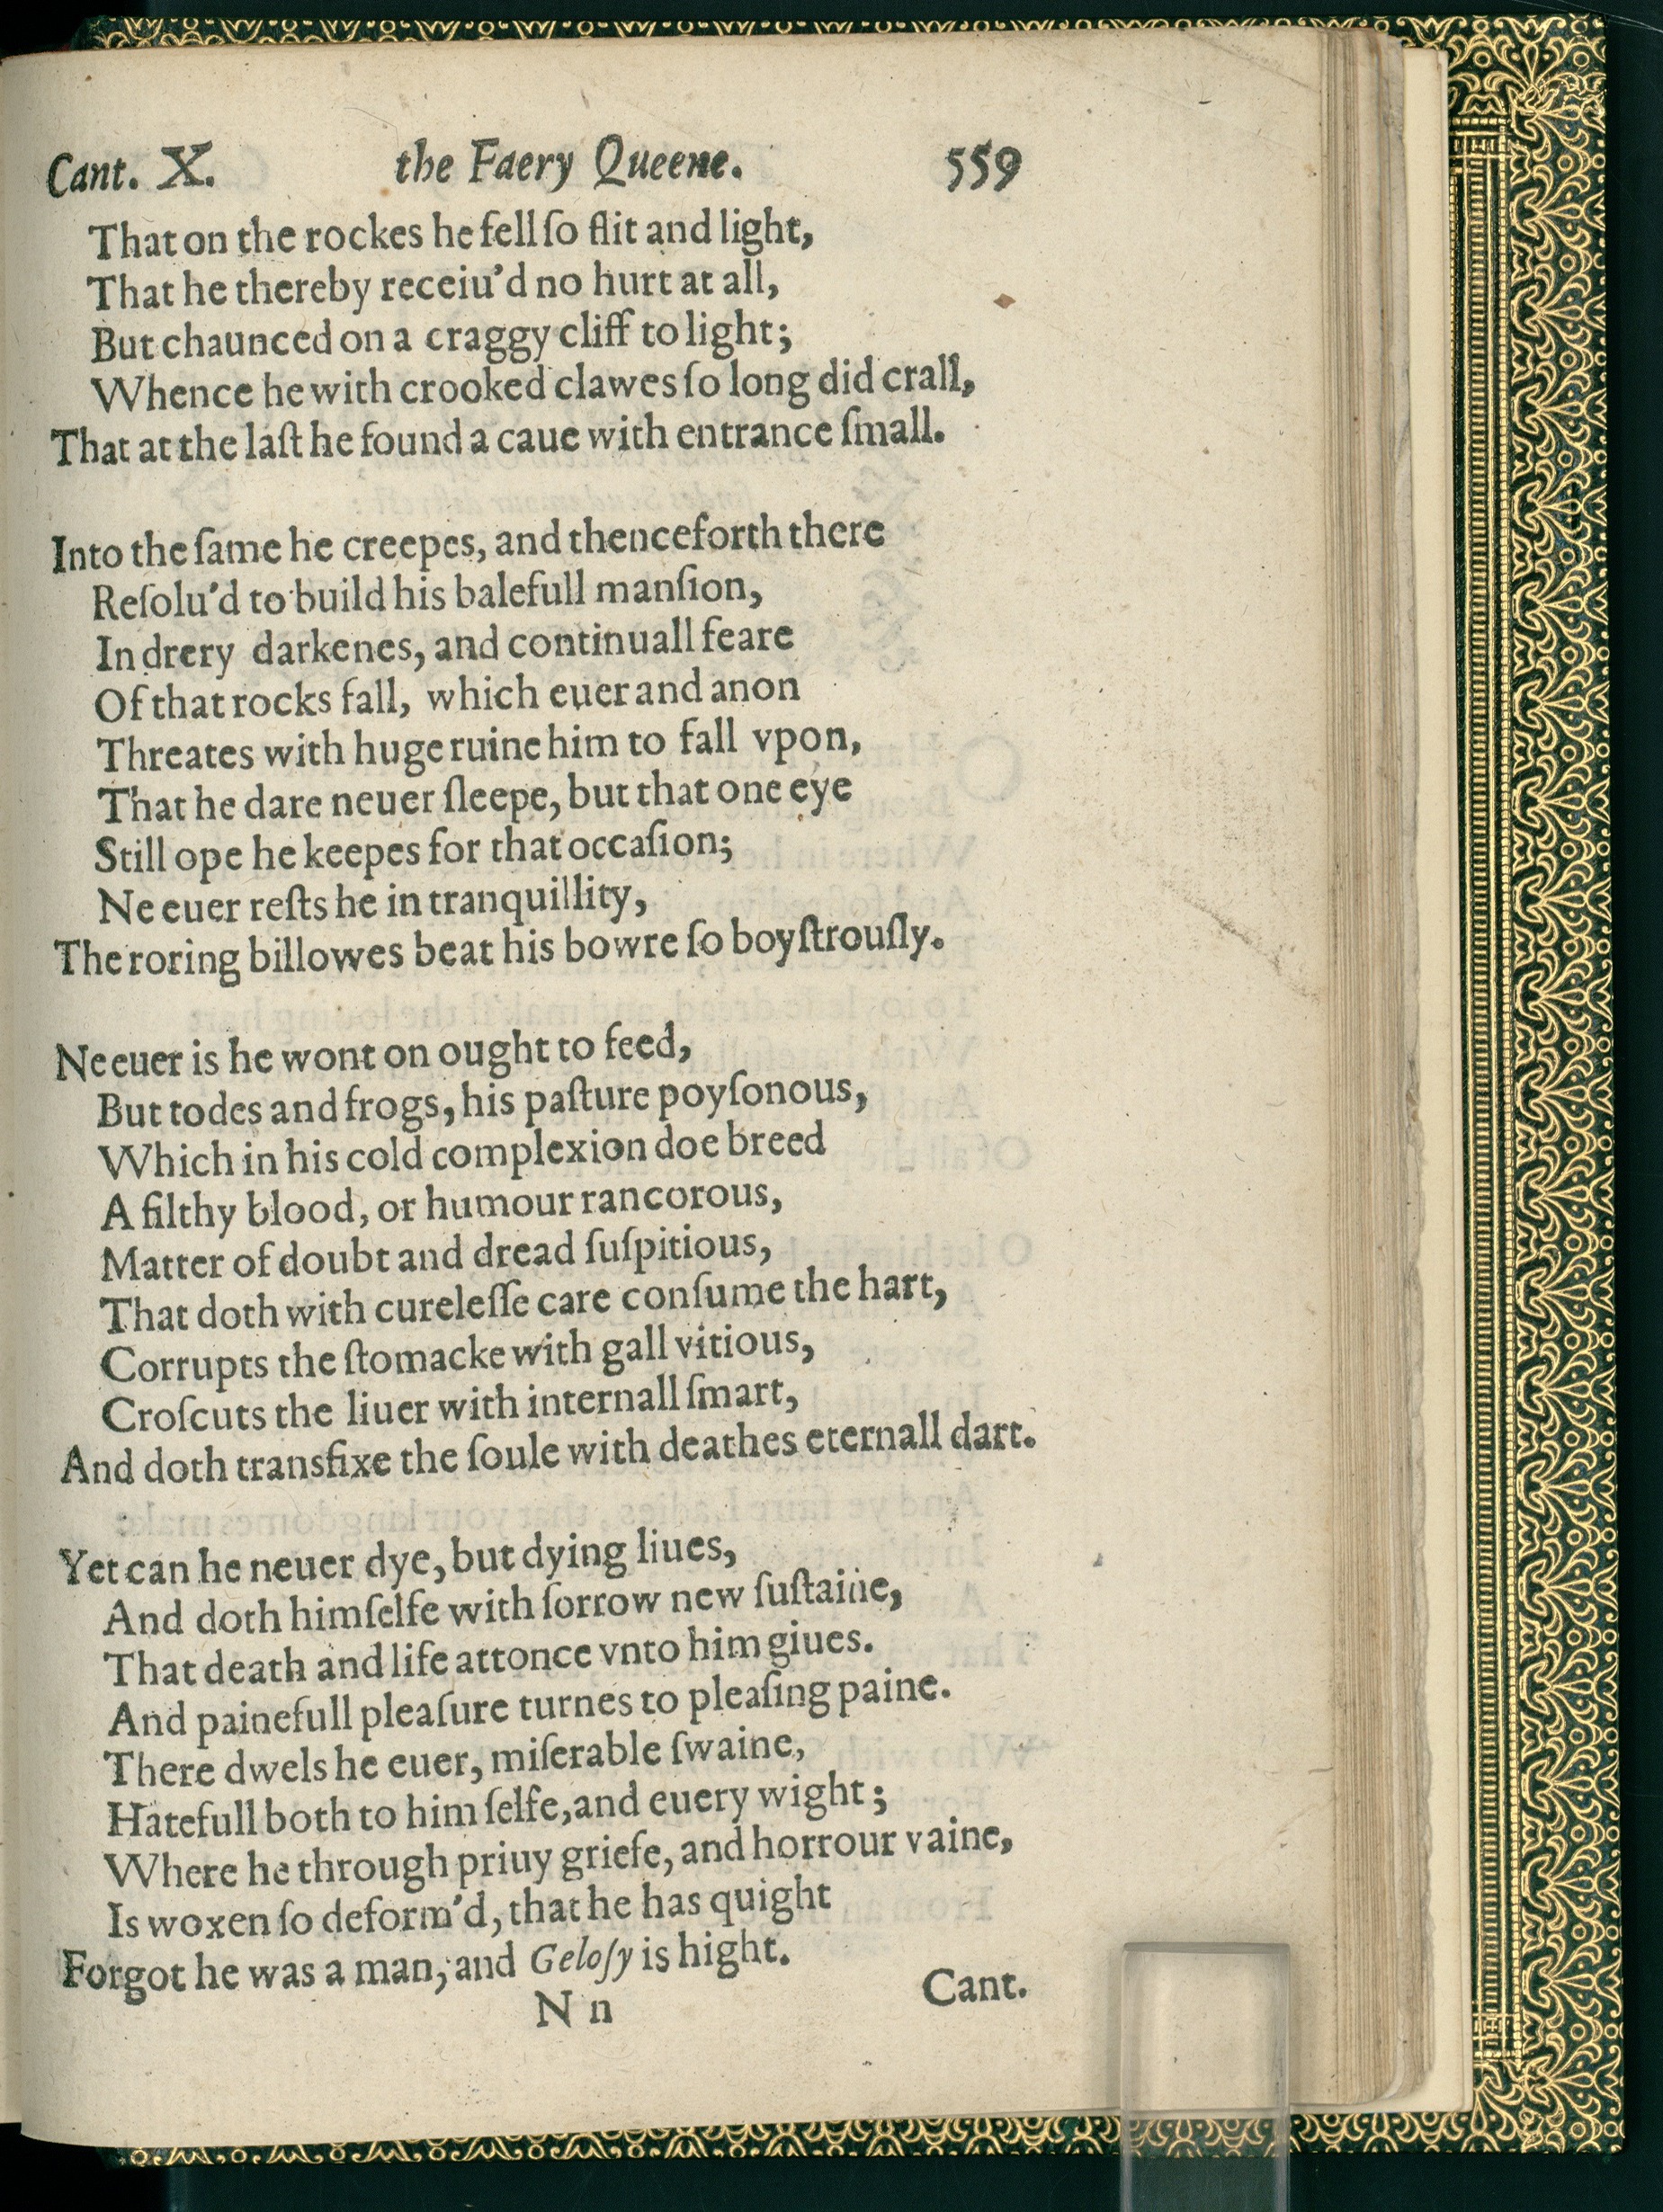 Cant. X. the Faery Queene. 559
That on the rockes he fell ſo flit and light,
That he thereby receiu'd no hurt at all,
But chaunced on a craggy cliff to light;
Whence he with crooked clawes ſo long did crall,
That at the laſt he found a caue with entrance ſmall.
Into the ſame he creepes, and thenceforth there
Reſolu'd to build his balefull manſion,
In drery darkenes, and continuall feare
Of that rocks fall, which euer and anon
Threates with huge ruine him to fall vpon,
That he dare neuer ſleepe, but that one eye
Still ope he keepes for that occaſion;
Ne euer reſts he in tranquillity,
The roring billowes beat his bowre ſo boyſtrouſly.
Ne euer is he wont on ought to feed,
But todes and frogs, his paſture poyſonous,
Which in his cold complexion doe breed
A filthy blood, or humour rancorous,
Matter of doubt and dread ſuſpitious,
That doth with cureleſſe care conſume the hart,
Corrupts the ſtomacke with gall vitious,
Croſcuts the liuer with internall ſmart,
And doth transfixe the ſoule with deathes eternall dart.
Yet can he neuer dye, but dying liues,
And doth himſelfe with ſorrow new ſuſtaine,
That death and life attonce vnto him giues.
And painefull pleaſure turnes to pleaſing paine.
There dwels he euer, miſerable ſwaine,
Hatefull both to him ſelfe, and euery wight;
Where he through priuy griefe, and horrour vaine,
Is woxen ſo deform'd, that he has quight
Forgot he was a man, and Geloſy is hight.
N n Cant.